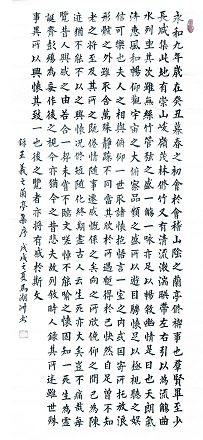 永和九年歲在癸丑暮春之初會於會稽山陰之蘭亭修禊事也群賢畢至少
長咸集此地有崇山峻嶺茂林修竹又有清流激湍映帶左右引以為流觴曲
水列坐其次雖無絲竹管弦之盛一觴一詠亦足以暢敘幽情是日也天朗氣
清惠風和暢仰觀宇宙之大俯察品類之盛所以遊目騁懷足以極視聽之娛
信可樂也夫人之相與俯仰一世或取諸懷抱悟言一室之內或因寄所托放浪
形骸之外雖取舍萬殊靜躁不同當其欣於所遇暫得於己快然自足曾不知
老之將至及其所之既倦情隨事遷感慨係之矣向之所欣俛仰之間已為陳
迹猶不能不以之興懷況修短隨化終期於盡古人云死生亦大矣豈不痛哉每
覽昔人興感之由若合一契未嘗不臨文嗟悼不能喻之於懷固知一死生為虛
誕齊彭殤為妄作後之視今亦猶今之視昔悲夫故列敘時人錄其所述雖世殊
事異所以興懷其致一也後之覽者亦將有感於斯文
錄王羲之蘭亭集序 戊戌之夏馬湖州書